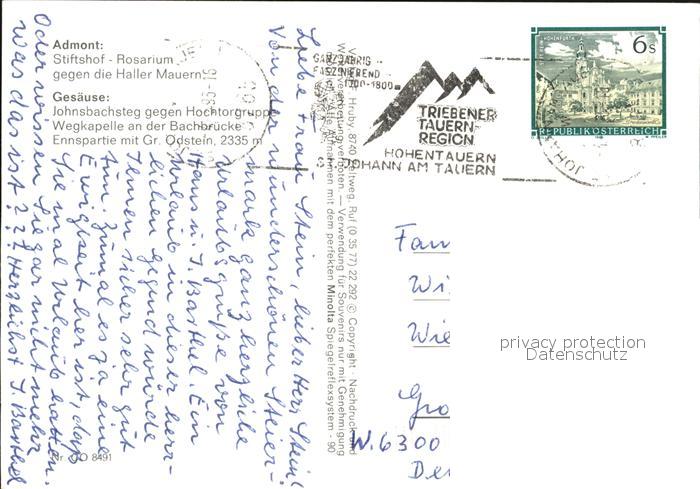 Admont:
Stiftshof - Rosarium
gegen die Haller Mauern
Gesäuse:
Johnsbachsteg gegen Hochtorgruppe
Wegkapelle an der Bachbrücke
Ennspartie mit Gr. Ödstein, 2335 m
GANZJÄHRIG
FASZINIEREND
1100-1800
TRIEBENER
TAUERN-
REGION
HOHENTAUERN
ST. JOHANN AM TAUERN
STIFT HOHENFURTH
6 s
REPUBLIK ÖSTERREICH
Liebe Frau Stein, lieber Herr Stein!
Von der wunderschönen Steier-
mark ganz herzliche
Urlaubsgrüße von
Hans u. I. Barthel. Ein
Urlaub in dieser herr-
lichen Gegend würde
Ihnen sicher sehr gut
tun. Zumal es ja eine
Ewigkeit her ist, daß
Sie mal Urlaub hatten.
Oder wissen Sie gar nicht mehr
was das ist??? Herzlichst I. Barthel
Hruby, 8740 Zeltweg, Ruf (0 35 77) 22 292 © Copyright - Nachdruck und
Weiterverbreitung verboten. — Verwendung für Souvenirs nur mit Genehmigung
Aufnahmen mit dem perfekten Minolta Spiegelreflexsystem - 90
Fam
Wi
Wie
Gro
W. 6300
De
privacy protection
Datenschutz
Nr. GO 8491